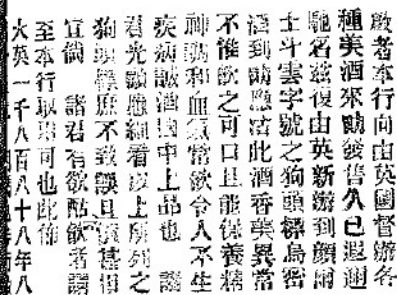 啟者本行向由英國督辦各
種美酒來發售久已遐邇
馳名茲復由英新辦到顔爾
士斗雲字號之狗頭標烏
酒到應沽此酒香美異常
不惟飲之可口且能保養精
神調和血氣常飲令人不生
疾病誠酒國中上品也 諸
君光顧應細看上所列之
狗頭標庶不致誤且價甚相
宜倘 諸君有欲酤飲者請
至本行取可也此佈
大英一千八百八十八年八